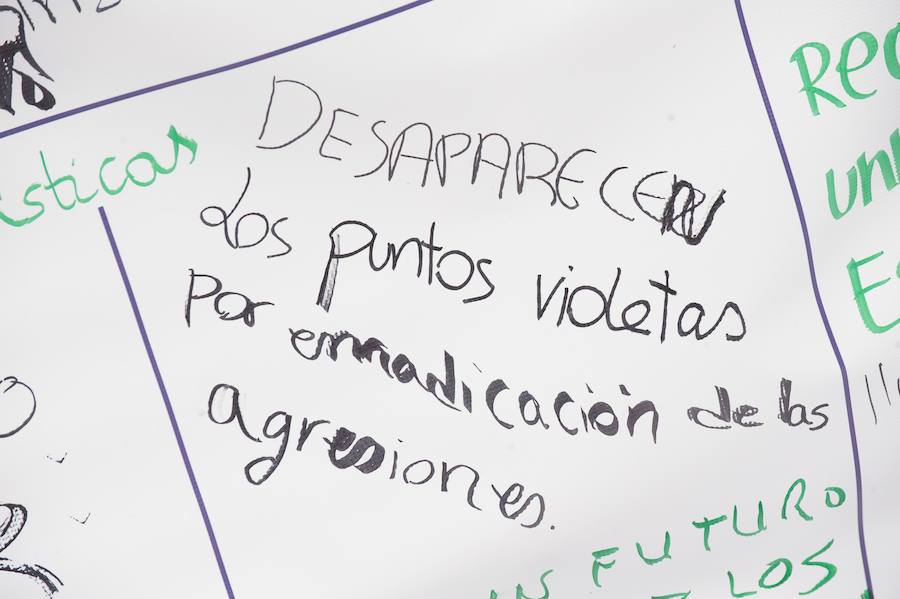 DESAPARECEN
Los puntos violetas
Por erradicación de las
agresiones.
ísticas
FUTURO
LOS